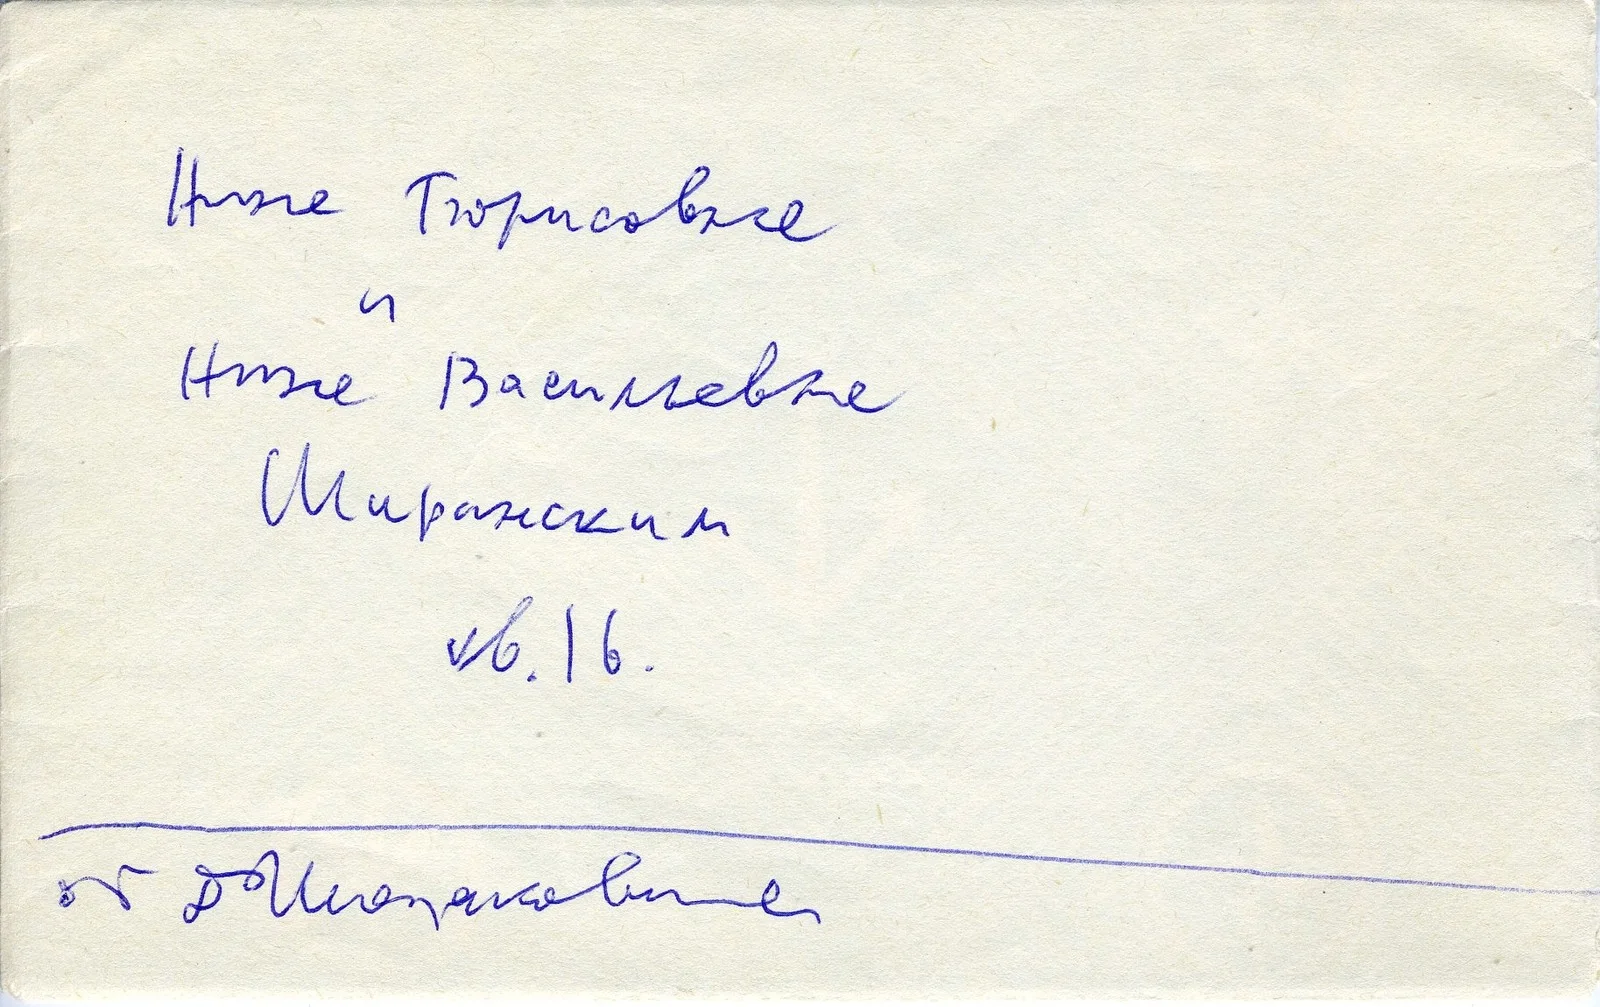 Нине Борисовне
и
Нине Васильевне
Ширанским
кв. 16.
от Д Шостаковича